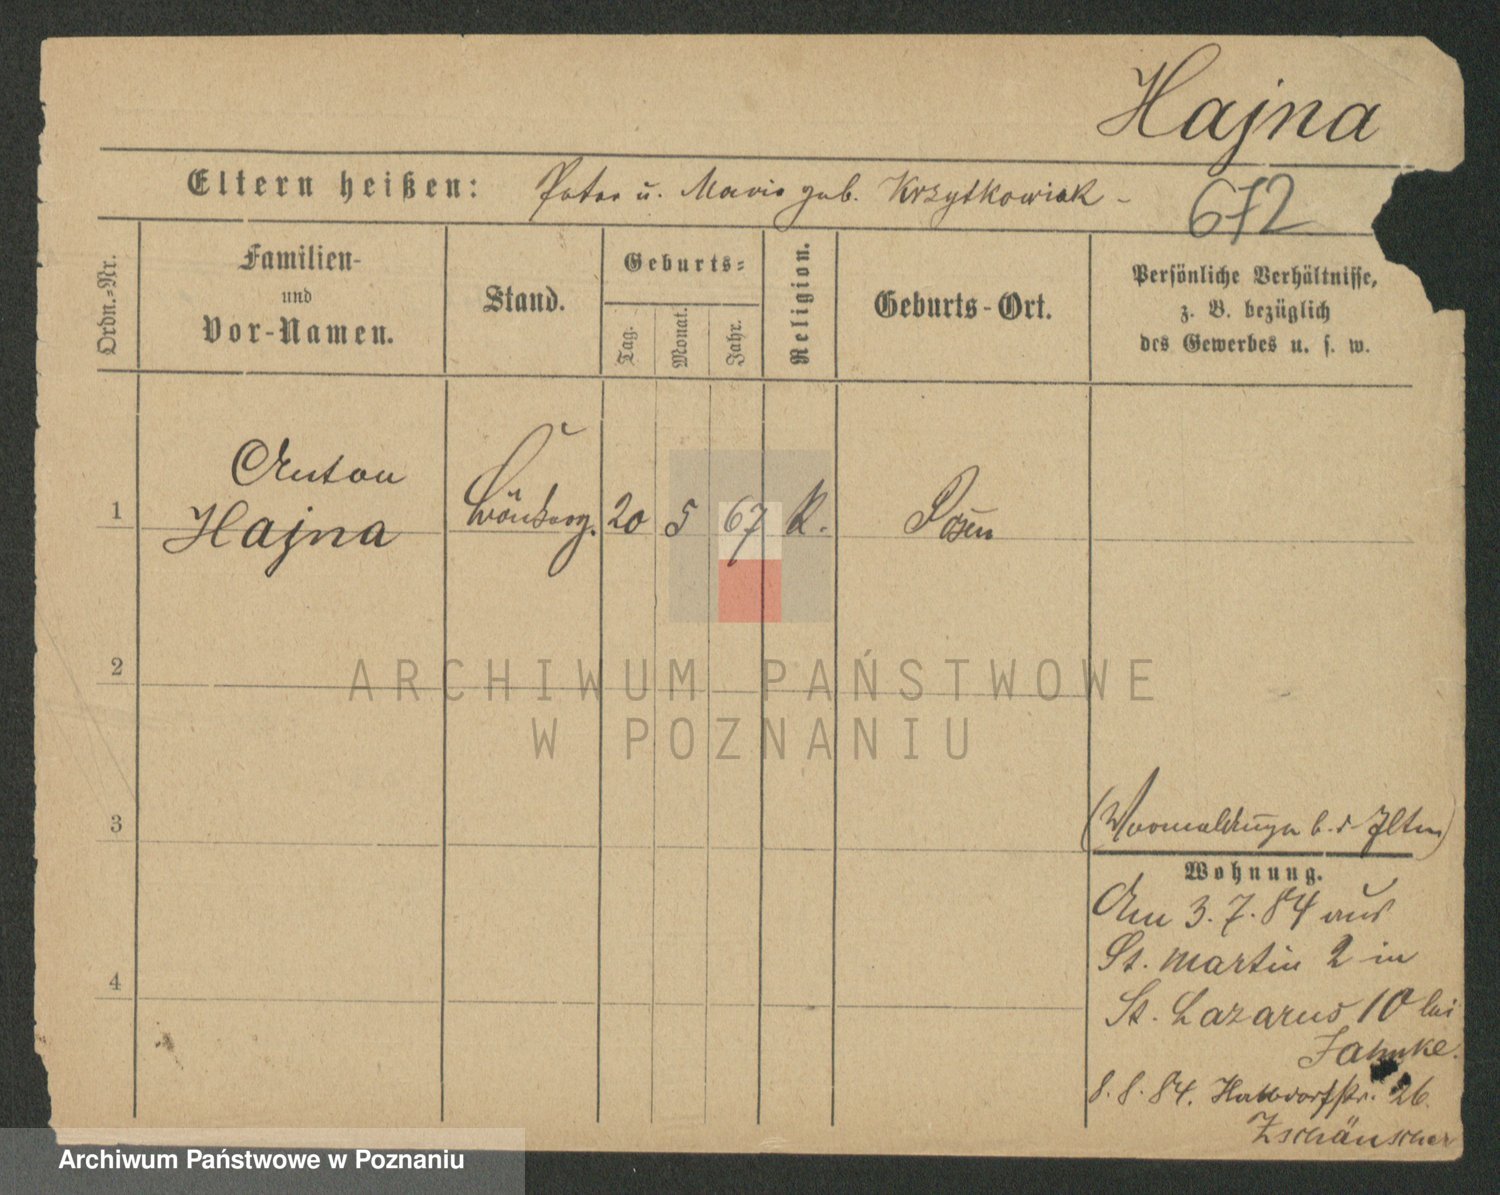 Hajna
Eltern heißen: Peter u. Marie geb. Krzytkowiak -
672
Ordn.-Nr.
Familien-
und
Vor-Namen.
Stand.
Geburts-
Tag.
Monat.
Jahr.
Religion.
Geburts-Ort.
Persönliche Verhältnisse,
z. B. bezüglich
des Gewerbes u. s. w.
Anton
1 Hajna 20 5 67 K. Posen
2
ARCHIWUM PAŃSTWOWE
W POZNANIU
3
b. d.
Wohnung.
Am 3.7.84 aus
St. Martin 2 in
4
St. Lazarus 10 bei
Jahnke.
8.8.84. 26.
Archiwum Państwowe w Poznaniu